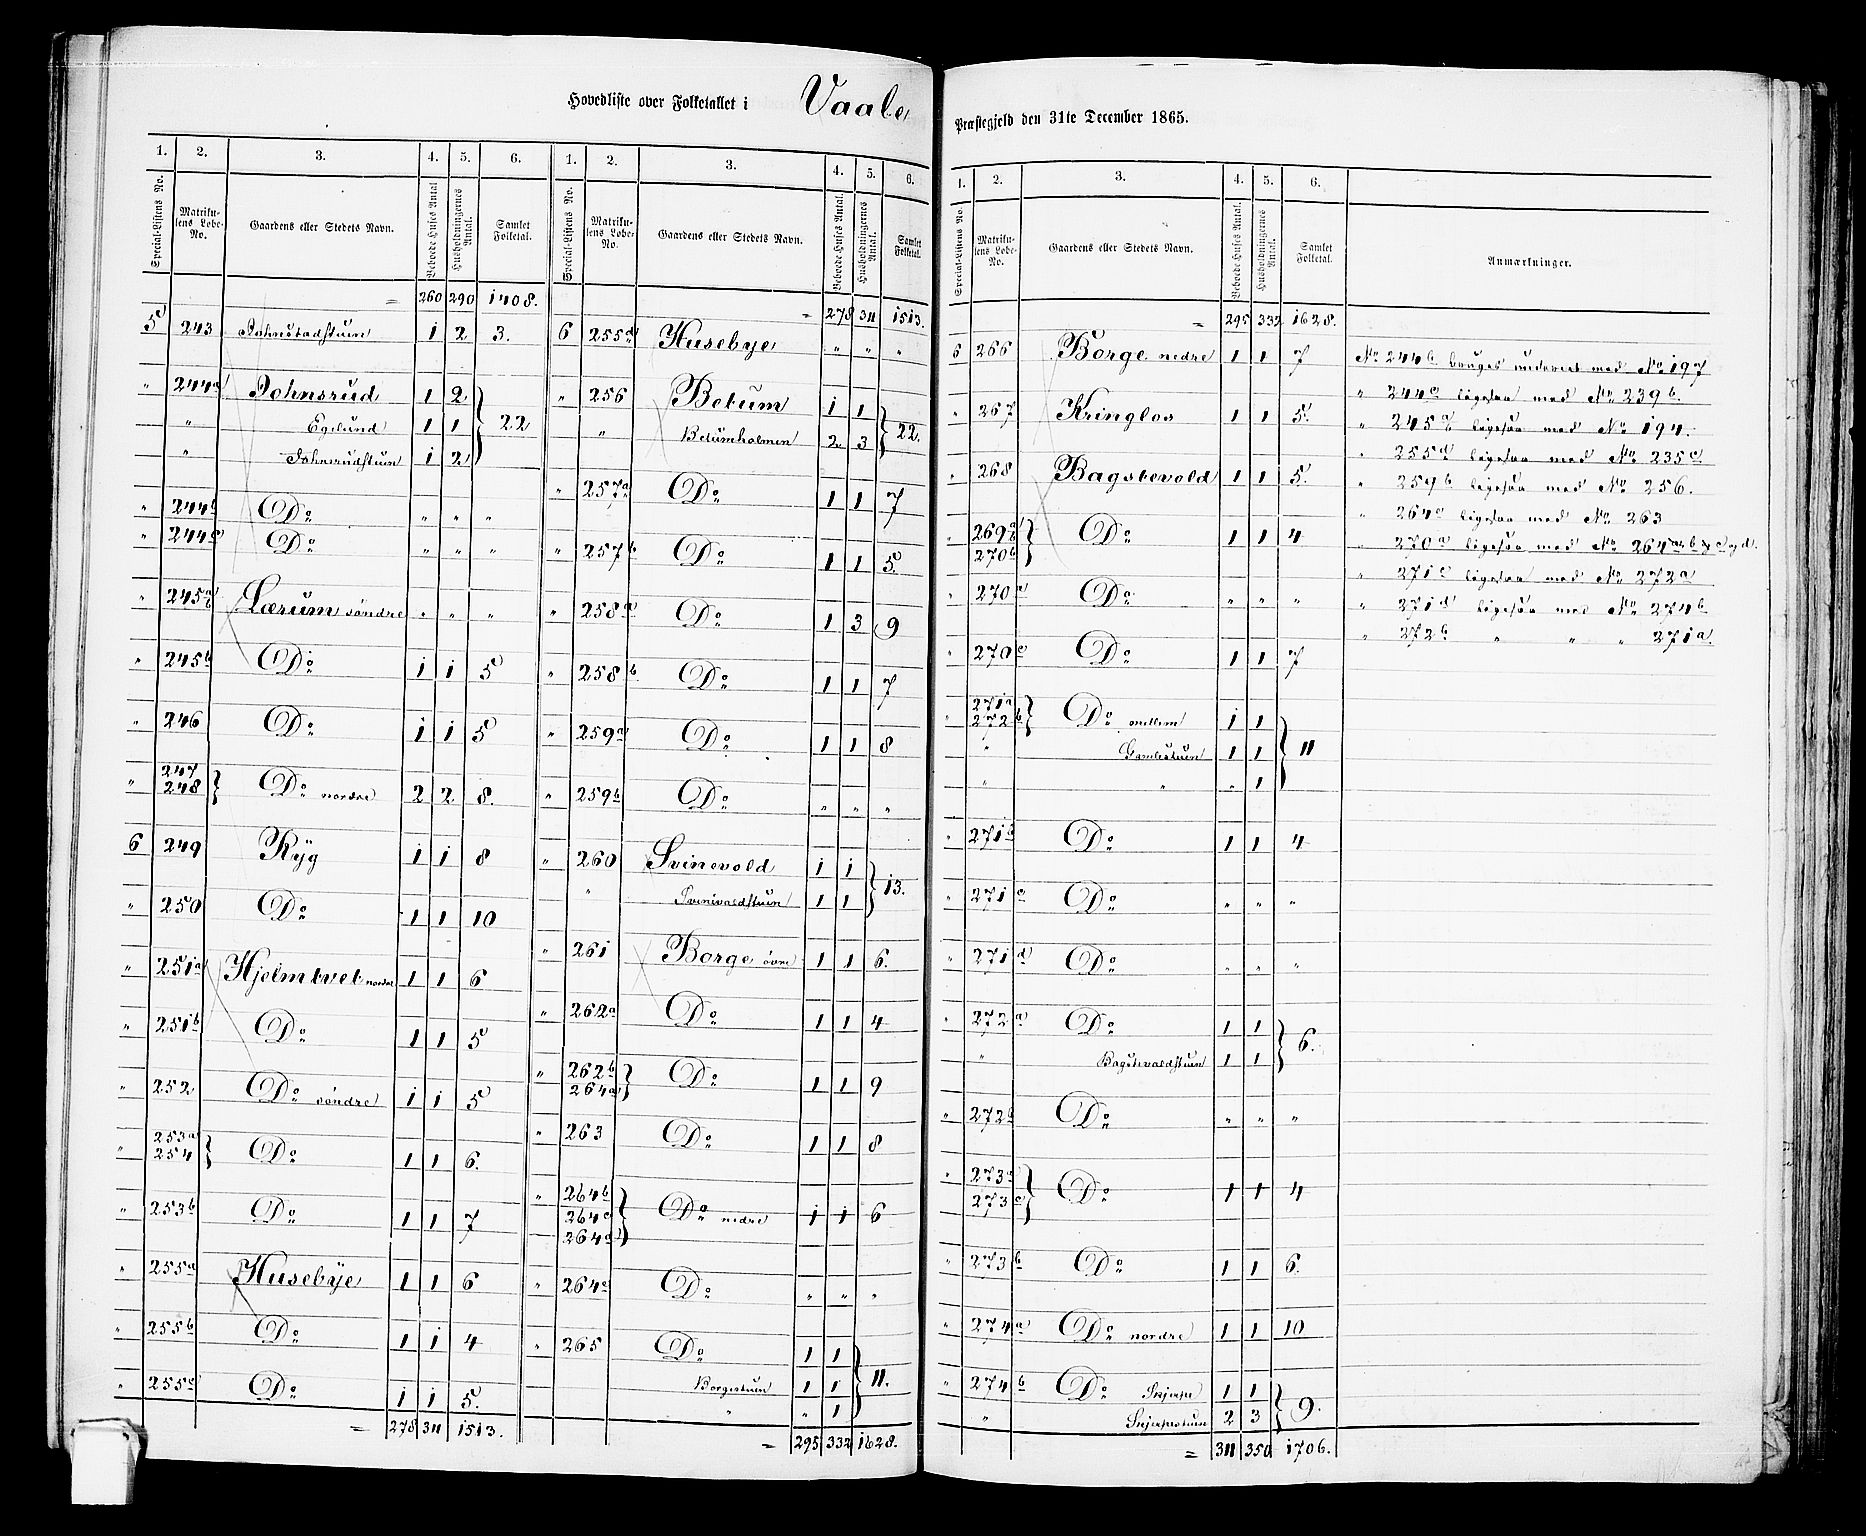 Hovedliste over Folketallet i Vaale Præstegjeld den 31te December 1865.
1. 2. 3. 4. 5. 6. 1. 2. 3. 4. 5. 6.
Special-Listens No. Matrikulens Løbe-No. Gaardens eller Stedets Navn. Beboede Huses Antal Husholdningernes Antal. Samlet Folketal. Special-Listens No. Matrikulens Løbe-No. Gaardens eller Stedets Navn. Beboede Huses Antal. Husholdningernes Antal. Samlet Folketal.
= 260 290 1408.
5 243 Johnsrudstuen 1 2 3.
" 244a Johnsrud 1 2 } 22
" Egelund 1 1
" Johnsrudstuen 1 2
" 244b Do " " "
" 244c Do " " "
" 245a Lærum söndre " " "
" 245b Do 1 1 5
" 246 Do 1 1 5
" 247 248 } Do nordre 2 2 8.
6 249 Ryg 1 1 8
" 250 Do 1 1 10
" 251a Hjelmtvet nordre 1 1 6
" 251b Do 1 1 5
" 252 Do söndre 1 1 5
" 253a 254 } Do 1 1 6.
" 253b Do 1 1 7
" 255a Husebye 1 1 6
" 255b Do 1 1 4
" 255c Do 1 1 5.
= 278 311 1513.
= 278 311 1513.
6 255d Husebye " " "
" 256 Betum 1 1 } 22.
" Betumholmen 2 3
" 257a Do 1 1 7
" 257b Do 1 1 5.
" 258a Do 1 3 9
" 258b Do 1 1 7
" 259a Do 1 1 8
" 259b Do " " "
" 260 Svinevold 1 1 } 13.
" Svinevoldstuen 1 1
" 261 Borge övre 1 1 6.
" 262a Do 1 1 4
" 262b 264a } Do 1 1 9
" 263 Do 1 1 8
" 264b 264c 264d } Do nedre 1 1 6
" 264e Do " " "
" 265 Do 1 1 } 11.
Borgestuen 1 1
" " 1
= 295 332 1628.
1. 2. 3. 4. 5. 6.
Special-Listens No. Matrikulens Løbe-No. Gaardens eller Stedets Navn. Beboede Huses Antal. Husholdningernes Antal. Samlet Folketal. Anmærkninger.
= 295 332 1628.
6 266 Borge nedre 1 1 7
" 267 Kringlos 1 1 5.
" 268 Bagstevold 1 1 5.
" 269 270b } Do 1 1 4
" 270a Do " " "
" 270c Do 1 1 7
" 271a 272b } Do mellem 1 1 } 11
" Gamlestuen 1 1
" " " 1
" 271b Do 1 1 4
" 271c Do " " "
" 271d Do " " "
" 272a Do 1 1 } 6.
" Bagstevoldstuen 1 1
" 272b Do " " "
" 273a 273c } Do 1 1 4
" 273b Do 1 1 6.
" 274a Do nordre 1 1 10
" 274b Do Skjerpe 1 1 } 9.
" Skjerpestuen 2 3
= 311 350 1706.
No 244b bruges underet med No 197
" 244c ligesaa med No 239b.
" 245a ligesaa med No 194.
" 255d ligesaa med No 235c
" 259b ligesaa med No 256.
" 264e ligesaa med No 263
" 270a ligesaa med No 264a, b, c og d.
" 271c ligesaa med No 272a
" 271d ligesaa med No 274b
" 272b " " " 271a.